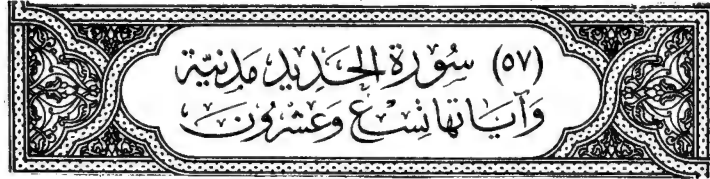 (٥٧) سُوْرَة الحَدِيْد مَدنيَّة
وَآيَاتها تِسْعٌ وَعشْرُونَ